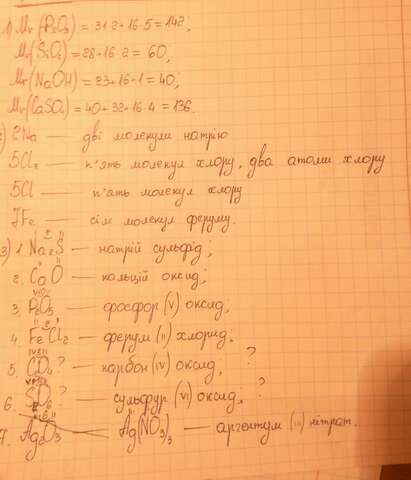 1) Mr(P2O5) = 31·2+16·5=142;
Mr(SiO2)=28+16·2=60;
Mr(NaOH)=23+16+1=40;
Mr(CaSO4)=40+32+16·4=136.
2) 2Na — дві молекули натрію
5Cl2 — п'ять молекул хлору, два атоми хлору
5Cl — п'ять молекул хлору
7Fe — сім молекул феруму.
3) 1. Na2S — натрій сульфід;
2. CaO — кальцій оксид;
3. P2O5 — фосфор (V) оксид;
4. FeCl2 — ферум (II) хлорид.
5. CO4? — карбон (IV) оксид, ?
6. SO6? — сульфур (VI) оксид. ?
7. Ag2O3 — Ag(NO3)3 — аргентум (III) нітрат.